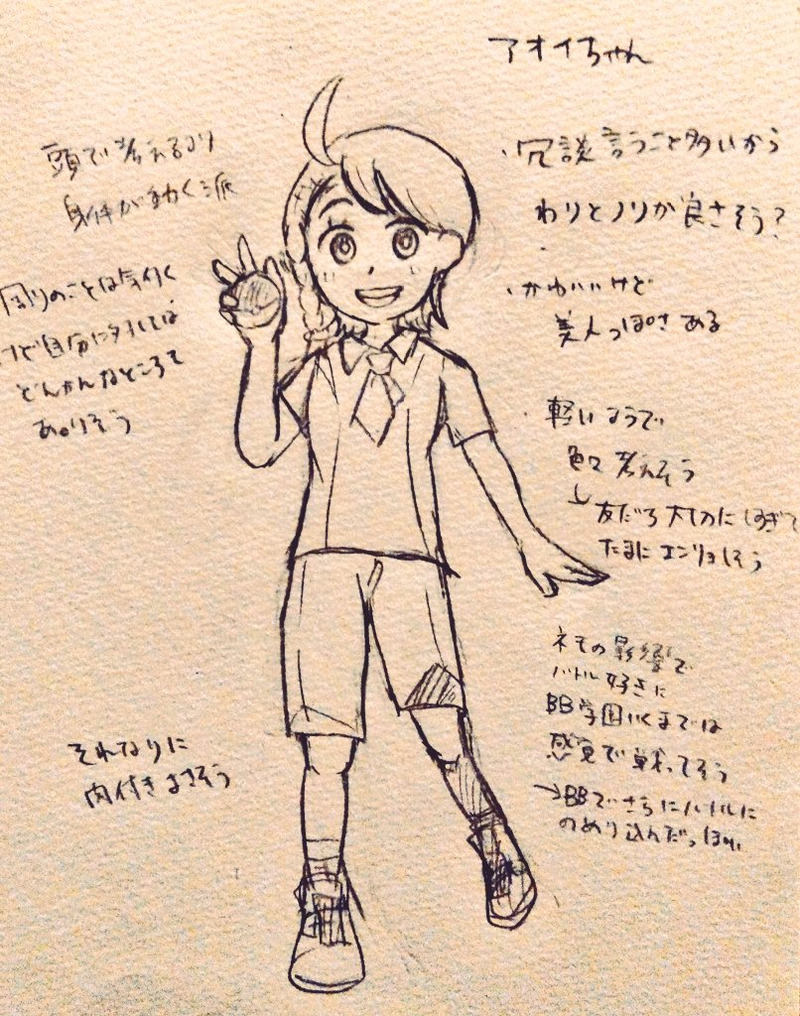 アオイちゃん
頭で考えるより
身体が動く派
周りのことは気付く
けど自分に対しては
どんかんなところて
ありそう
それなりに
肉付きよさそう
・冗談言うこと多いから
わりとノリが良さそう?
・かわいいけど
美人っぽさある
・軽いようで
色々考えそう
↳友だち大切にしすぎて
たまにエンリョしそう
ネモの影響で
バトル好きに
BB学園いくまでは
感覚で戦ってそう
→BBでさらにバトルに
のめり込んだっぽい